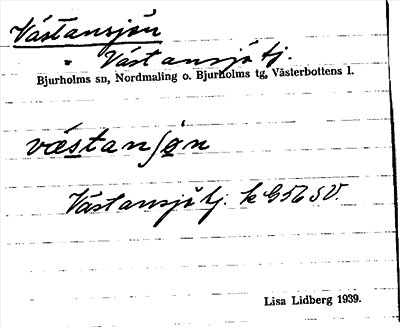 Västansjön
" Västansjö tj.
Bjurholms sn, Nordmaling o. Bjurholms tg, Västerbottens l.
væstanʃøn
Västansjö tj. k G56 SV.
Lisa Lidberg 1939.